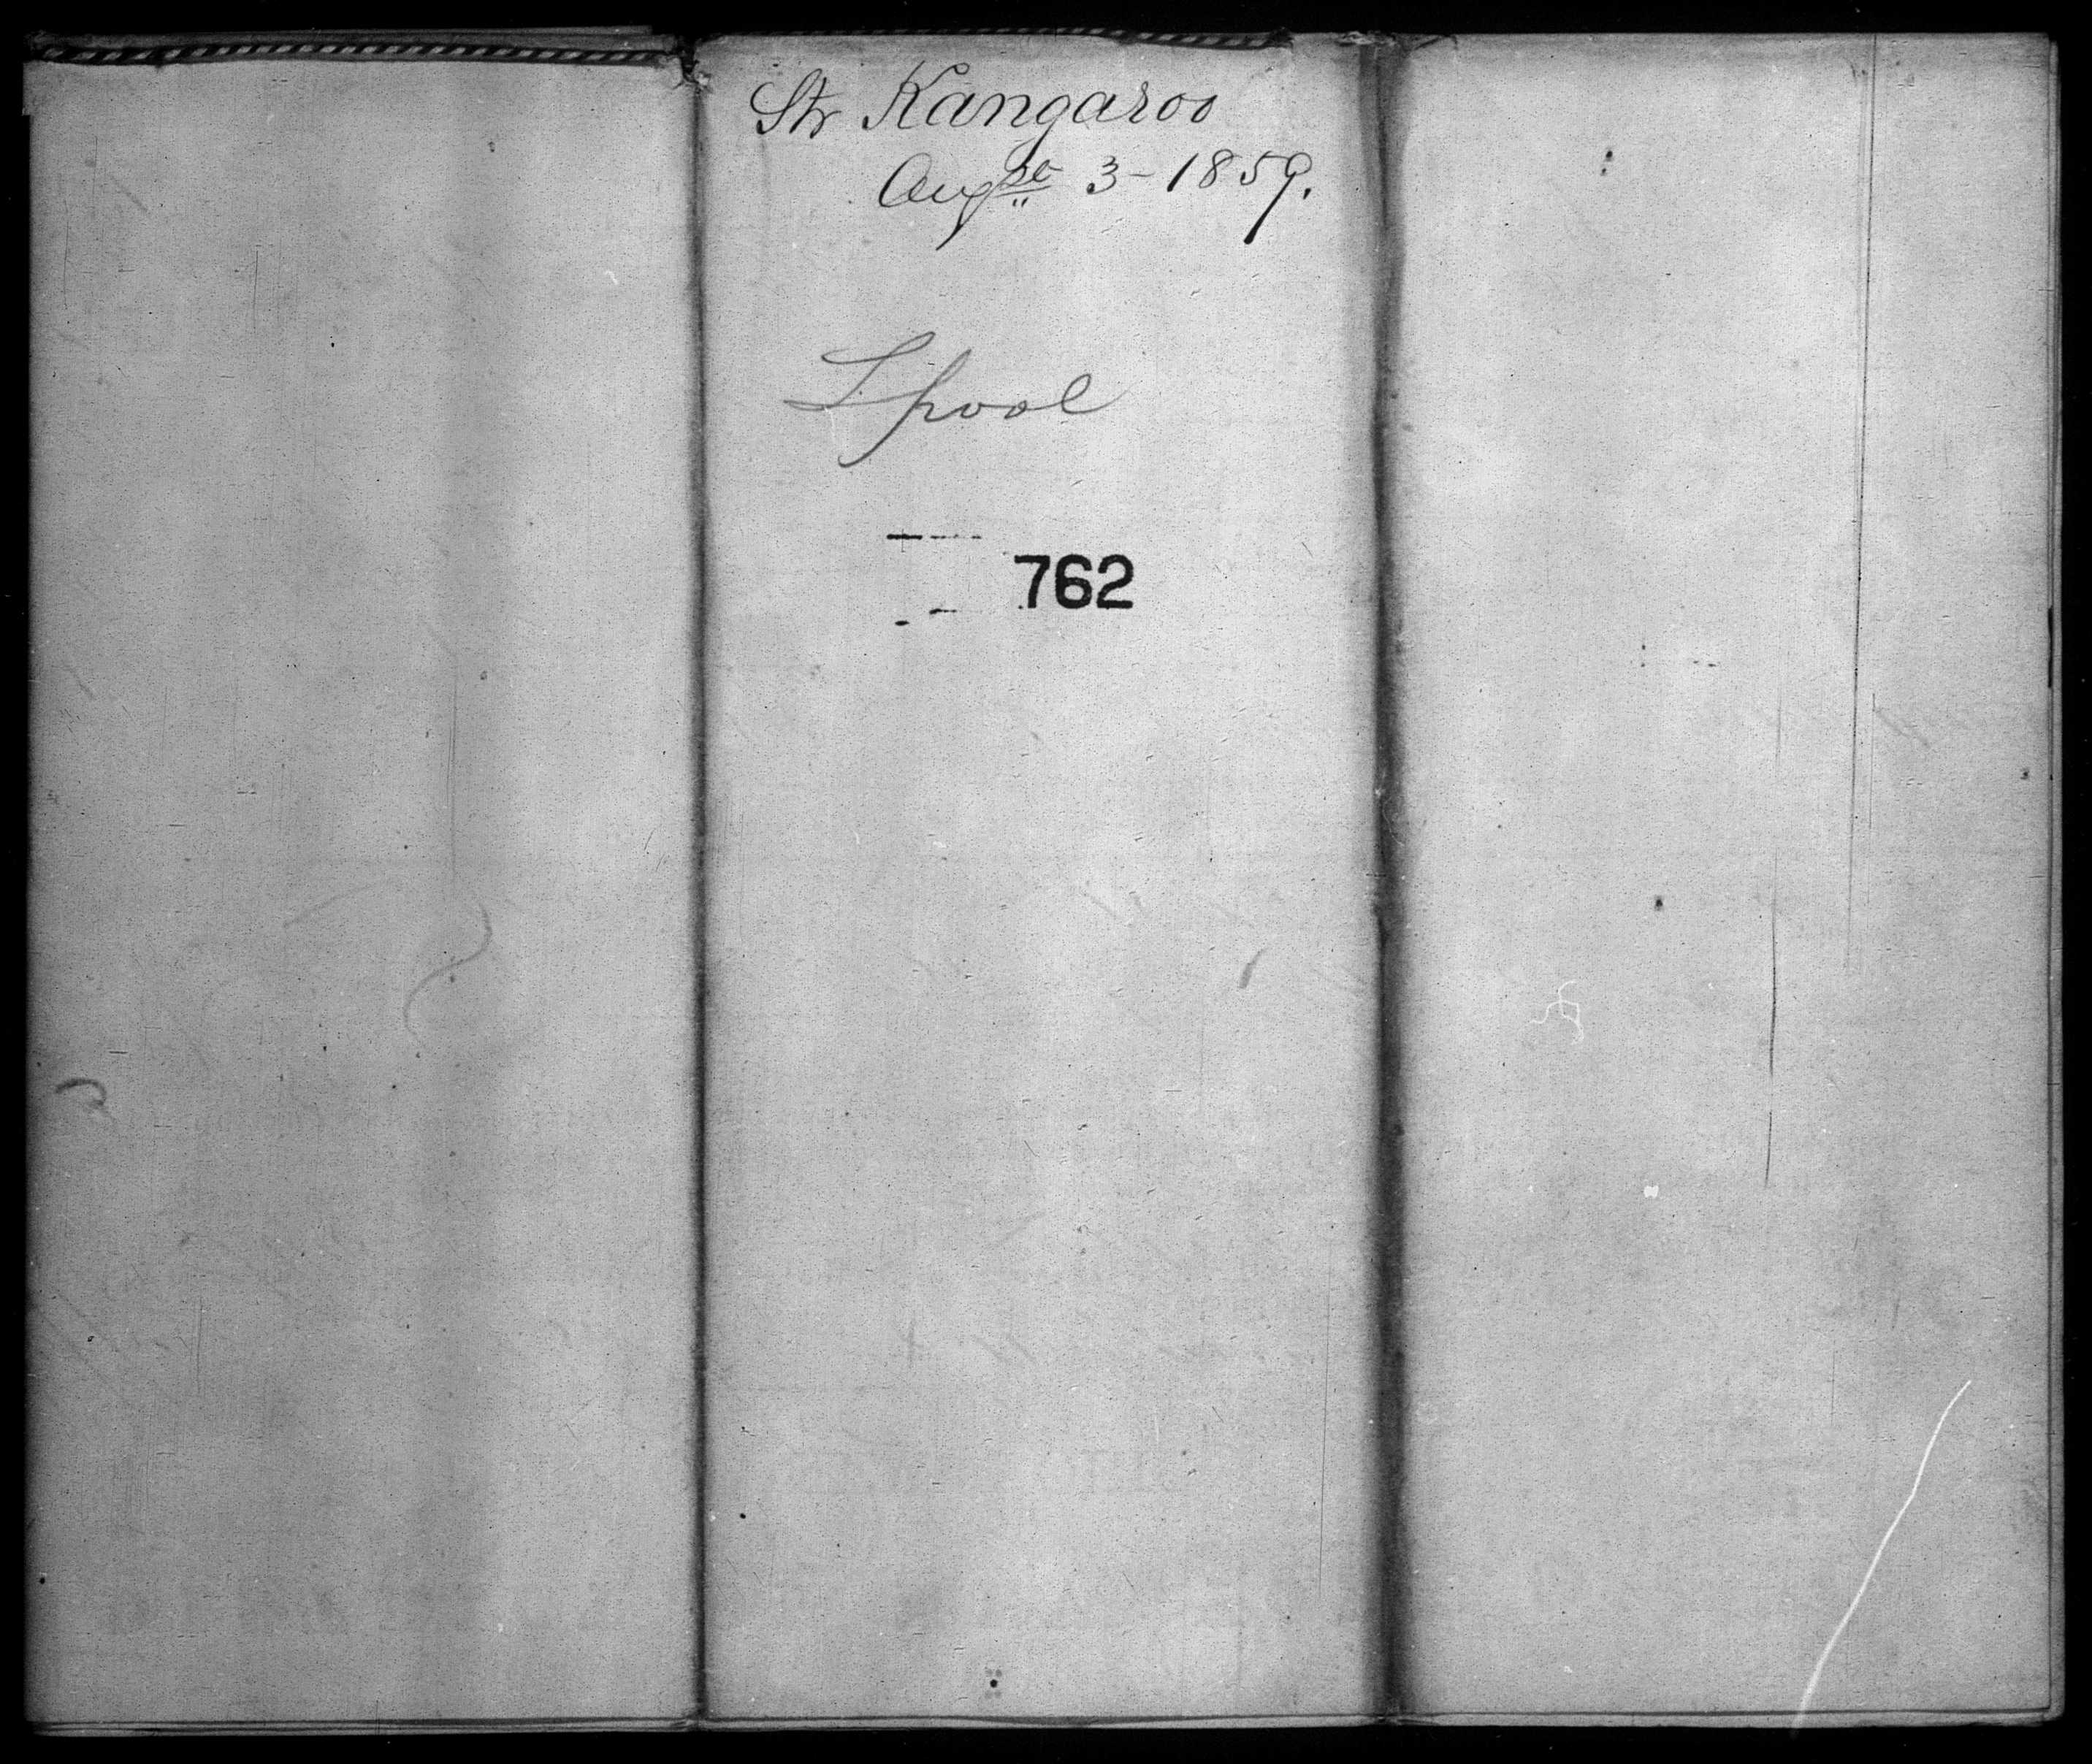 Str Kangaroo
Augst 3 - 1859.
Lpool
762